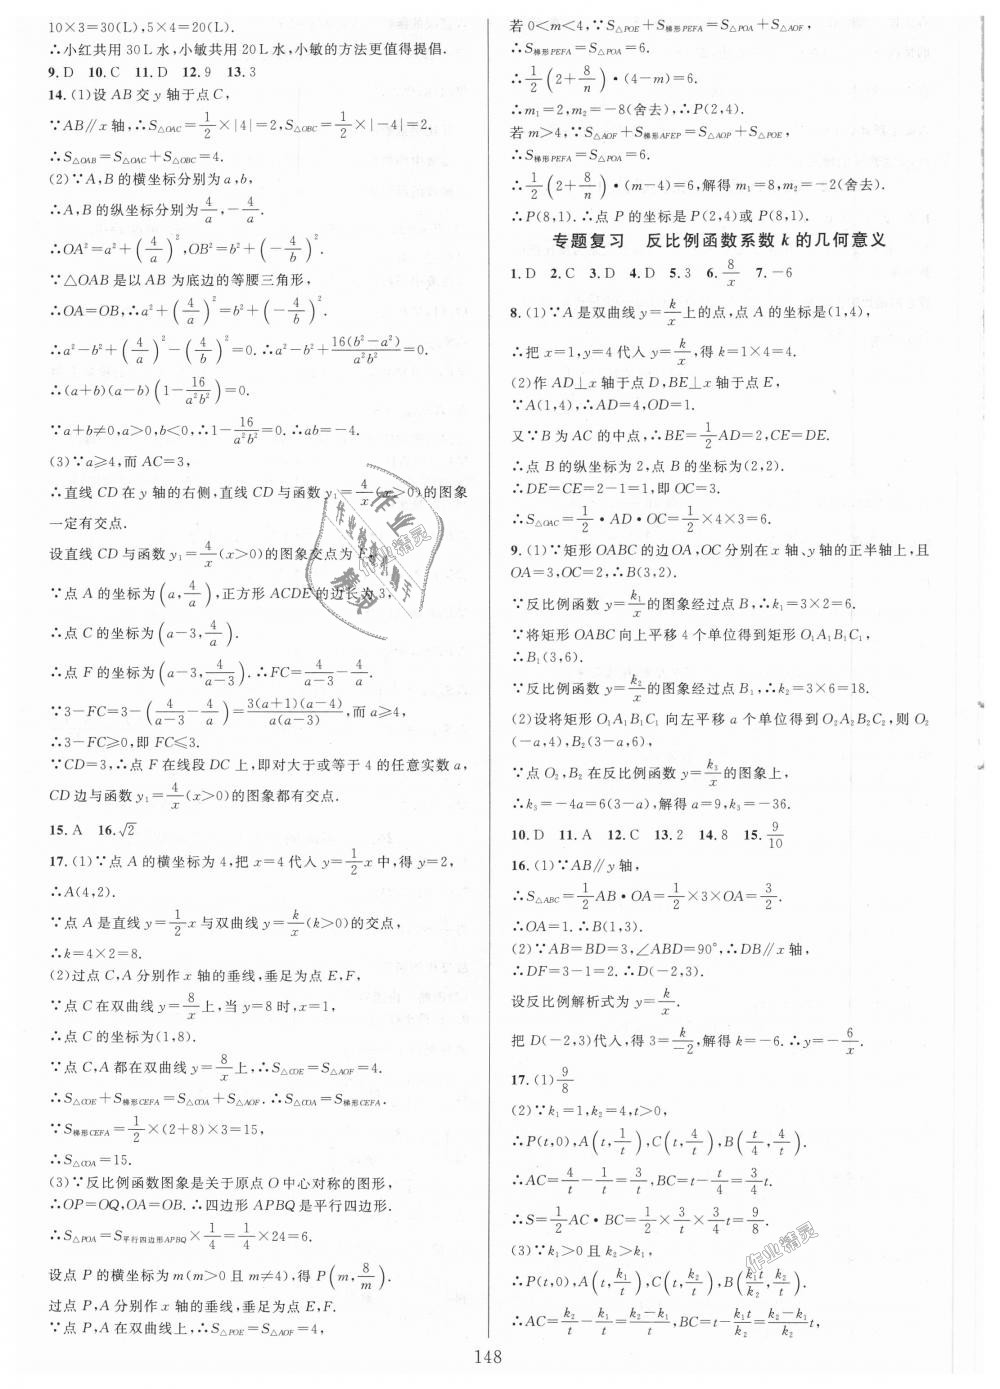 10×3=30(L),5×4=20(L).
∴小红共用30L水,小敏共用20L水,小敏的方法更值得提倡.
9.D 10.C 11.D 12.9 13.3
14.(1)设AB交y轴于点C,
∵AB∥x轴,∴S△OAC=1/2×|4|=2,S△OBC=1/2×|-4|=2.
∴S△OAB=S△OAC+S△OBC=4.
(2)∵A,B的横坐标分别为a,b,
∴A,B的纵坐标分别为4/a,-4/b.
∴OA²=a²+(4/a)²,OB²=b²+(-4/b)².
∵△OAB是以AB为底边的等腰三角形,
∴OA=OB,∴a²+(4/a)²=b²+(-4/b)².
∴a²-b²+(4/a)²-(4/b)²=0.∴a²-b²+16(b²-a²)/a²b²=0.
∴(a+b)(a-b)(1-16/a²b²)=0.
∵a+b≠0,a>0,b<0,∴1-16/a²b²=0.∴ab=-4.
(3)∵a≥4,而AC=3,
∴直线CD在y轴的右侧,直线CD与函数y₁=4/x(x>0)的图象
一定有交点.
设直线CD与函数y₁=4/x(x>0)的图象交点为F,
∵点A的坐标为(a,4/a),正方形ACDE的边长为3,
∴点C的坐标为(a-3,4/a).
∴点F的坐标为(a-3,4/(a-3)).∴FC=4/(a-3)-4/a.
∵3-FC=3-(4/(a-3)-4/a)=3(a+1)(a-4)/a(a-3),而a≥4,
∴3-FC≥0,即FC≤3.
∵CD=3,∴点F在线段DC上,即对大于或等于4的任意实数a,
CD边与函数y₁=4/x(x>0)的图象都有交点.
15.A 16.√2
17.(1)∵点A的横坐标为4,把x=4代入y=1/2x中,得y=2,
∴A(4,2).
∵点A是直线y=1/2x与双曲线y=k/x(k>0)的交点,
∴k=4×2=8.
(2)过点C,A分别作x轴的垂线,垂足为点E,F,
∵点C在双曲线y=8/x上,当y=8时,x=1,
∴点C的坐标为(1,8).
∵点C,A都在双曲线y=8/x上,∴S△COE=S△AOF=4.
∴S△COE+S梯形CEFA=S△COA+S△AOF.∴S△COA=S梯形CEFA.
∵S梯形CEFA=1/2×(2+8)×3=15,
∴S△COA=15.
(3)∵反比例函数图象是关于原点O中心对称的图形,
∴OP=OQ,OA=OB.∴四边形APBQ是平行四边形.
∴S△POA=S平行四边形APBQ×1/4=1/4×24=6.
设点P的横坐标为m(m>0且m≠4),得P(m,8/m).
过点P,A分别作x轴的垂线,垂足为点E,F.
∵点P,A在双曲线上,∴S△POE=S△AOF=4,
若0<m<4,∵S△POE+S梯形PEFA=S△POA+S△AOF,
∴S梯形PEFA=S△POA=6.
∴1/2(2+8/n)·(4-m)=6.
∴m₁=2,m₂=-8(舍去),∴P(2,4).
若m>4,∵S△AOF+S梯形AFEP=S△AOP+S△POE,
∴S梯形PEFA=S△POA=6.
∴1/2(2+8/n)·(m-4)=6,解得m₁=8,m₂=-2(舍去).
∴P(8,1).∴点P的坐标是P(2,4)或P(8,1).
专题复习 反比例函数系数k的几何意义
1.D 2.C 3.D 4.D 5.3 6.8/x 7.-6
8.(1)∵A是双曲线y=k/x上的点,点A的坐标是(1,4),
∴把x=1,y=4代入y=k/x,得k=1×4=4.
(2)作AD⊥x轴于点D,BE⊥x轴于点E,
∵A(1,4),∴AD=4,OD=1.
又∵B为AC的中点,∴BE=1/2AD=2,CE=DE.
∴点B的纵坐标为2,点B的坐标为(2,2).
∴DE=CE=2-1=1,即OC=3.
∴S△OAC=1/2·AD·OC=1/2×4×3=6.
9.(1)∵矩形OABC的边OA,OC分别在x轴、y轴的正半轴上,且
OA=3,OC=2,∴B(3,2).
∵反比例函数y=k₁/x的图象经过点B,∴k₁=3×2=6.
∵将矩形OABC向上平移4个单位得到矩形O₁A₁B₁C₁,
∴B₁(3,6).
∵反比例函数y=k₂/x的图象经过点B₁,∴k₂=3×6=18.
(2)设将矩形O₁A₁B₁C₁向左平移a个单位得到O₂A₂B₂C₂,则O₂
(-a,4),B₂(3-a,6),
∵点O₂,B₂在反比例函数y=k₃/x的图象上,
∴k₃=-4a=6(3-a),解得a=9,k₃=-36.
10.D 11.A 12.C 13.2 14.8 15.9/10
16.(1)∵AB∥y轴,
∴S△ABC=1/2AB·OA=1/2×3×OA=3/2.
∴OA=1.∴B(1,3).
(2)∵AB=BD=3,∠ABD=90°,∴DB∥x轴,
∴DF=3-1=2.∴D(-2,3).
设反比例解析式为y=k/x.
把D(-2,3)代入,得3=k/-2,解得k=-6.∴y=-6/x.
17.(1)9/8
(2)∵k₁=1,k₂=4,t>0,
∴P(t,0),A(t,1/t),C(t,4/t),B(t/4,4/t).
∴AC=4/t-1/t=3/t,BC=t-t/4=3/4t.
∴S=1/2AC·BC=1/2×3/t×3/4t=9/8.
(3)∵k₁>0且k₂>k₁,
∴P(t,0),A(t,k₁/t),C(t,k₂/t),B(k₁t/k₂,k₂/t).
∴AC=k₂/t-k₁/t=(k₂-k₁)/t,BC=t-k₁t/k₂=(k₂-k₁)/k₂ t,
148